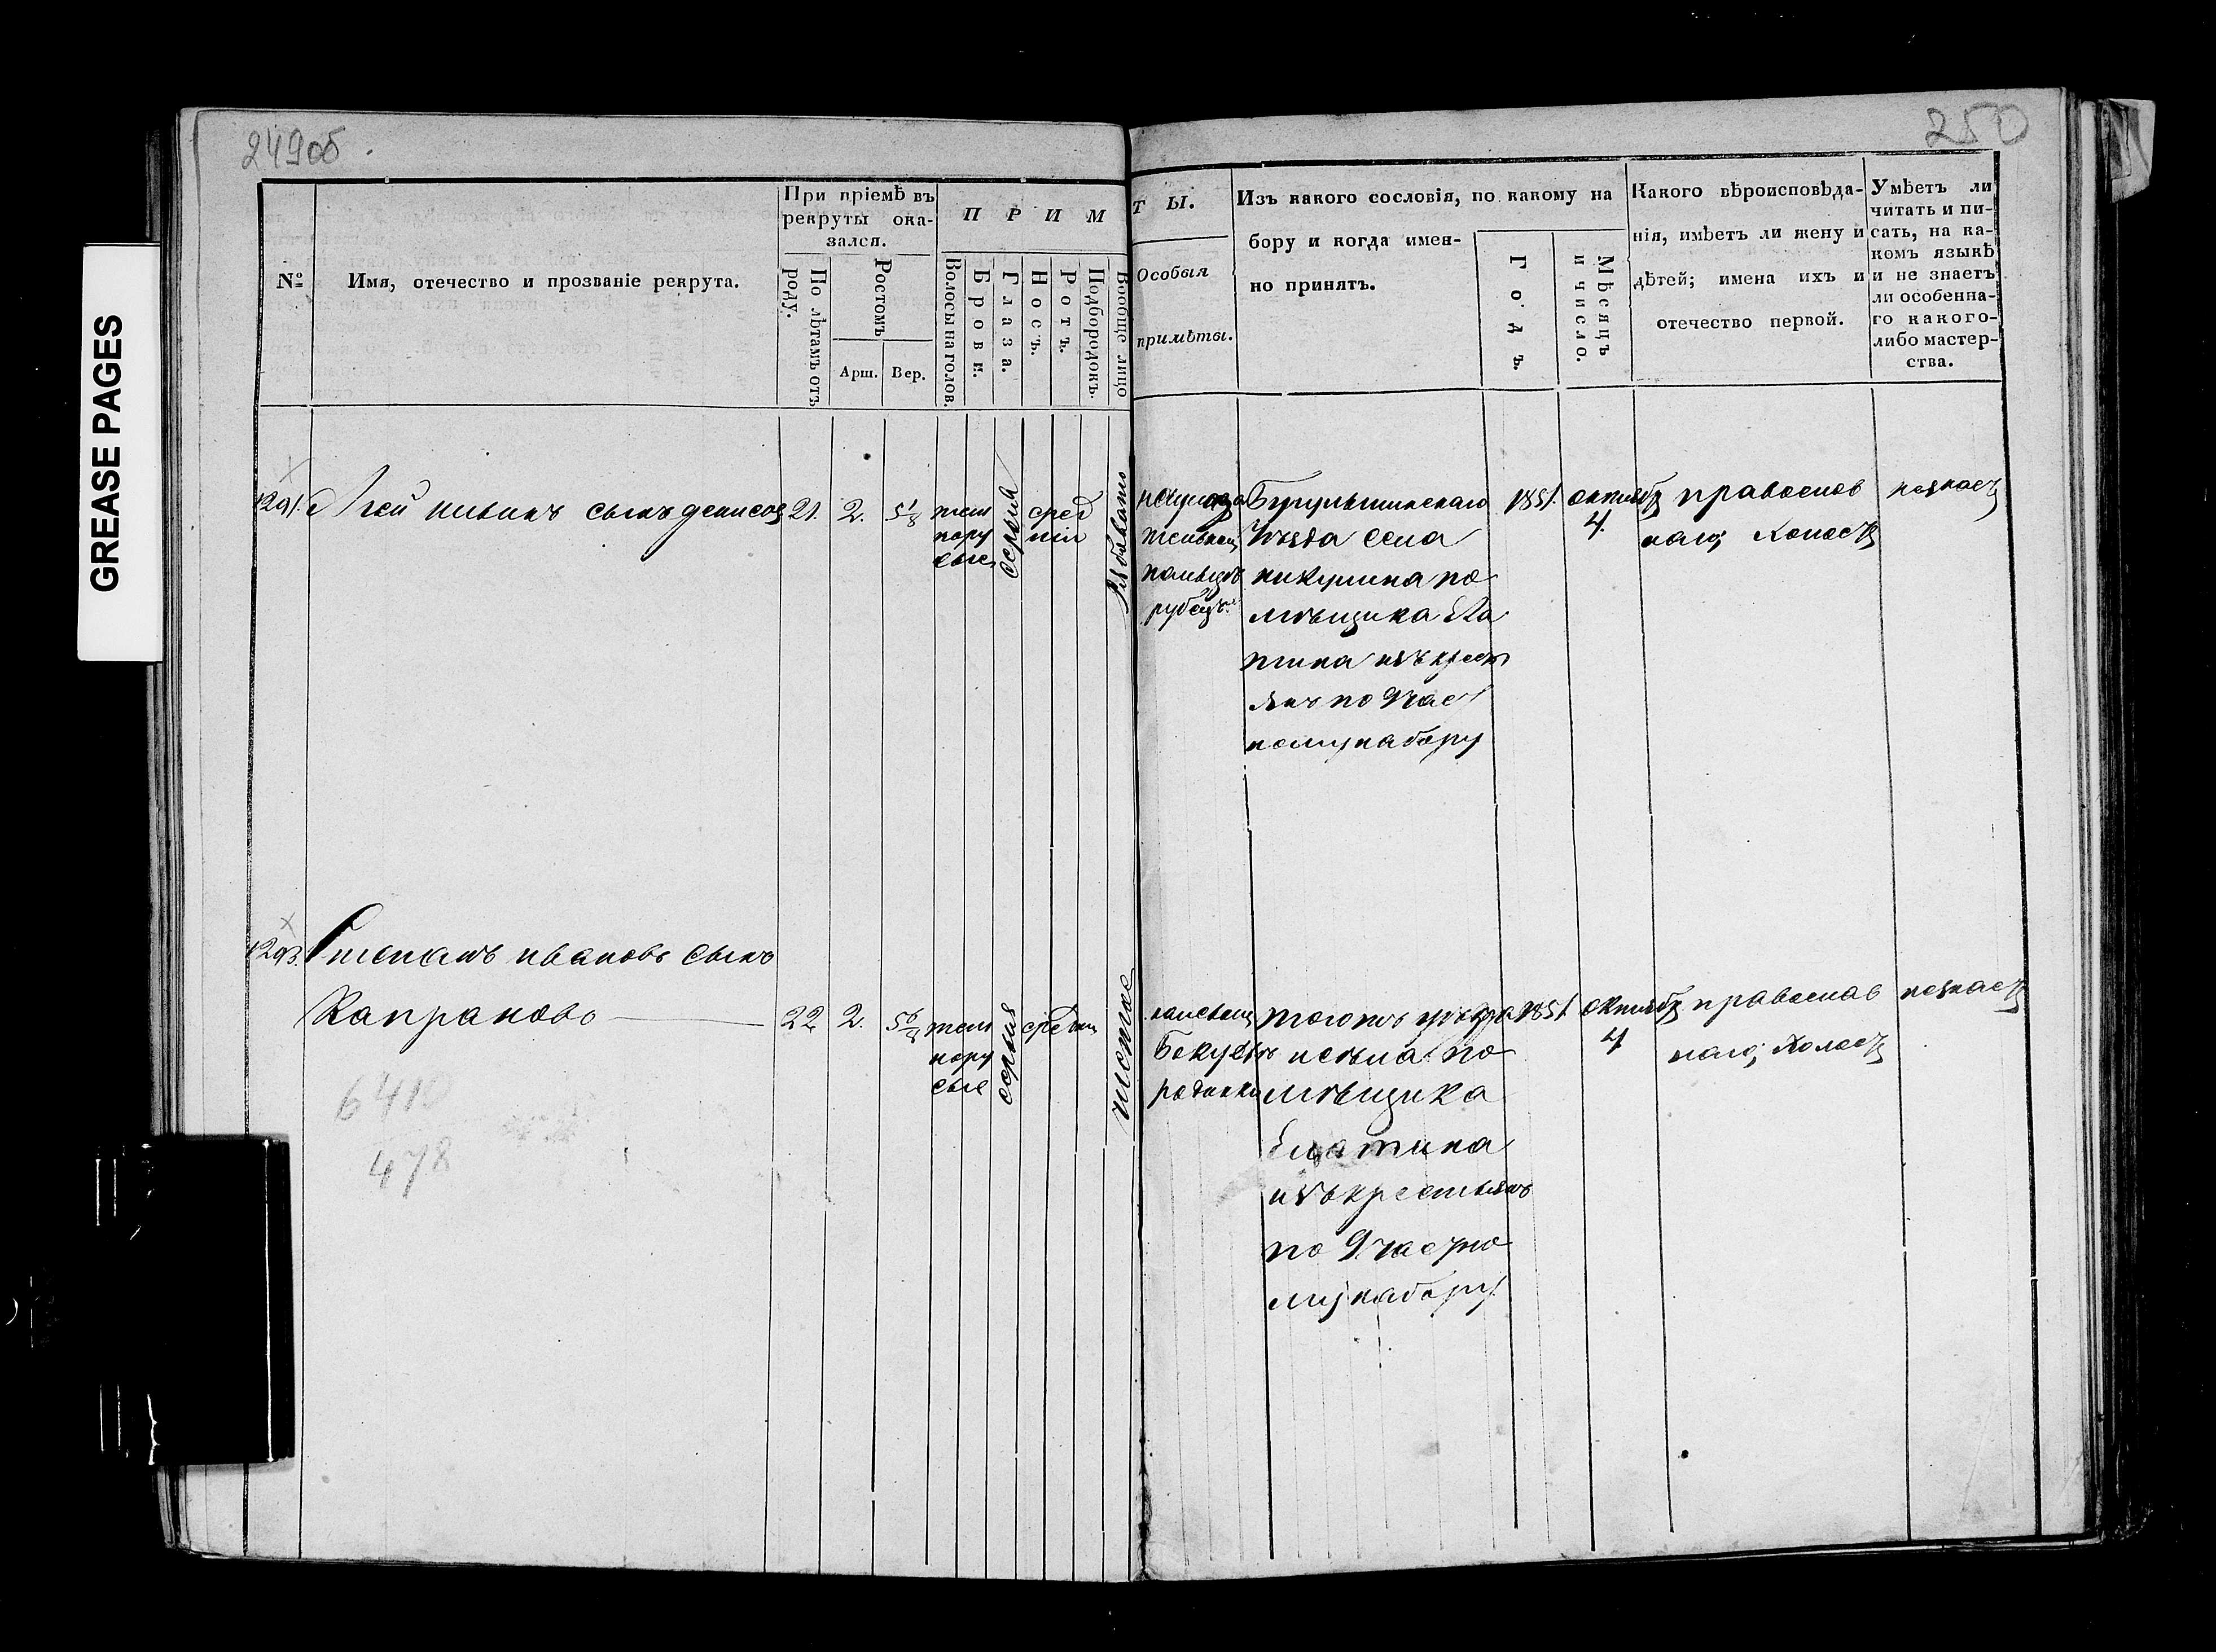 GREASE PAGES
249об.
250
№
Имя, отечество и прозваніе рекрута.
При пріемѣ въ
рекруты ока-
зался.
По лѣтамъ отъ
роду.
Ростомъ
Арш.
Вер.
П Р И М
Волосы на голов.
Брови.
Глаза.
Носъ.
Ротъ.
Подбородокъ.
Вообще лицо
Т Ы.
Особыя
примѣты.
Изъ какого сословія, по какому на
бору и когда имен-
но принятъ.
Годъ
Мѣсяцъ
и число.
Какого вѣроисповѣда-
нія, имѣетъ ли жену и
дѣтей; имена ихъ и
отечество первой.
Умѣетъ ли
читать и пи-
сать, на ка-
комъ языкѣ
и не знаетъ
ли особенна-
го какого-
либо мастер-
ства.
сынъ денисовъ
21.
2.
5 1/8
тем
нору
сые
серыя
сред
нія
рубецъ
Бугульминскаго
Уѣзда села
никулина по
мѣщика Ела
тина изъ крест
янъ по 9 част
ному набору
1851.
октябр
4.
православ
наго; Холостъ
незнаетъ
1293.
Степанъ ивановъ сынъ
Капрановъ
22
2.
тем
нору
сые
серыя
чистое
родинки
тогожъ уѣзда
по
мѣщика
Елатина
изъ крестьянъ
по 9 частно
му набору
1851.
октябр
4
православ
наго; Холостъ
незнаетъ
6410
478